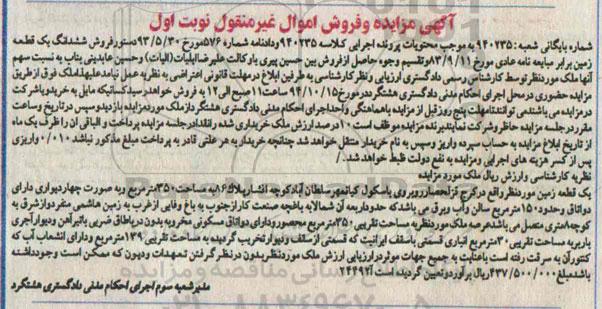 آگهی مزایده وفروش اموال غیرمنقول نوبت اول
شماره بایگانی شعبه: ۹۴۰۲۳۵ به موجب محتویات پرونده اجرایی کلاسه ۹۴۰۲۳۵ ودادنامه شماره ۵۷۶مورخ ۹۳/۵/۳۰دستورفروش ششدانگ یک قطعه
زمین برابر مبایعه نامه عادی مورخ ۸۳/۹/۱۱وتقسیم وجوه حاصل ازفروش بین حسین پیری باوکالت علیرضاپلیات (الیات) وحسین عابدینی بناب به نسبت سهم
آنها ملک موردنظر توسط کارشناس رسمی دادگستری ارزیابی ونظرکارشناسی به طرفین ابلاغ درمهلت قانونی اعتراضی به نظریه عمل نیامد علیهذاملک فوق از طریق
مزایده حضوری در محل اجرای احکام مدنی دادگستری هشتگرد درمورخ ۹۴/۱۰/۱۵ساعت ۱۱صبح الی ۱۲ به فروش خواهد رسیدکسانیکه مایل به خرید وشرکت
درمزایده می باشندمی توانندتامهلت پنج روز قبل از مزایده باهماهنگی واحداجرای احکام مدنی دادگستری هشتگرد از موردمزایده بازدید وسپس در تاریخ وساعت
مقرر در جلسه مزایده حاضر وشرکت نمایند برنده مزایده موظف است ۱۰درصد ارزش ملک خریداری شده را نقدا در جلسه مزایده پرداخت و الباقی آن را ظرف یک ماه
از تاریخ ابلاغ مزایده به حساب سپرده واریز وسپس به نام خریدار منتقل خواهد شد چنانچه خریدار به هر علتی قادر به پرداخت مبلغ مذکور نباشد ۰/۰۱۰ واریزی
پس از کسر هزینه های اجرایی ومزایده به نفع دولت ضبط خواهد شد./
نظریه کارشناسی وارزش ریال ملک مورد مزایده
یک قطعه زمین موردنظر واقع درکرج قزلحصار روبروی پاسگول کیانمهر سلطان آباد کوچه افشار پلاک۸۶به مساحت ۳۵۰مترمربع وبه صورت چهاردیواری دارای
دواتاق وحدود۱۵۰مترمربع سالن وآب وبرق می باشدکه حدود اربعه آن شمالا به باغچه صنعت کار از جنوب به باغ وفایی ازغرب به زمین هاشمی منفرد ازشرق به
کوچه۸متری متصل می باشدعرصه ملک موردنظربه مساحت تقریبی ۳۵۰مترمربع محصورودارای دواتاق مسکونی مخروبه بدون درباطاق ضربی باتیرآهن ودیوارآجری
باربربه مساحت تقریبی ۳۰مترمربع انباری قسمتی باسقف ایرانیت که قسمتی از سقف ودیوارتخریب گردیده به مساحت تقریبی ۱۳۹مترمربع ودارای انشعاب آب که
کنتورآن به سرقت رفته است باعنایت به جمیع جهات موثردرارزیابی ارزش ملک موردنظربدون درنظرگرفتن تعهدات ودیون که ممکن است وجودداشته
باشدمبلغ۴۳۷/۵۰۰/۰۰۰ریال برآوردوتعیین گردیده است آ۲۴۴۹۲
مدیرشعبه سوم اجرای احکام مدنی دادگستری هشتگرد